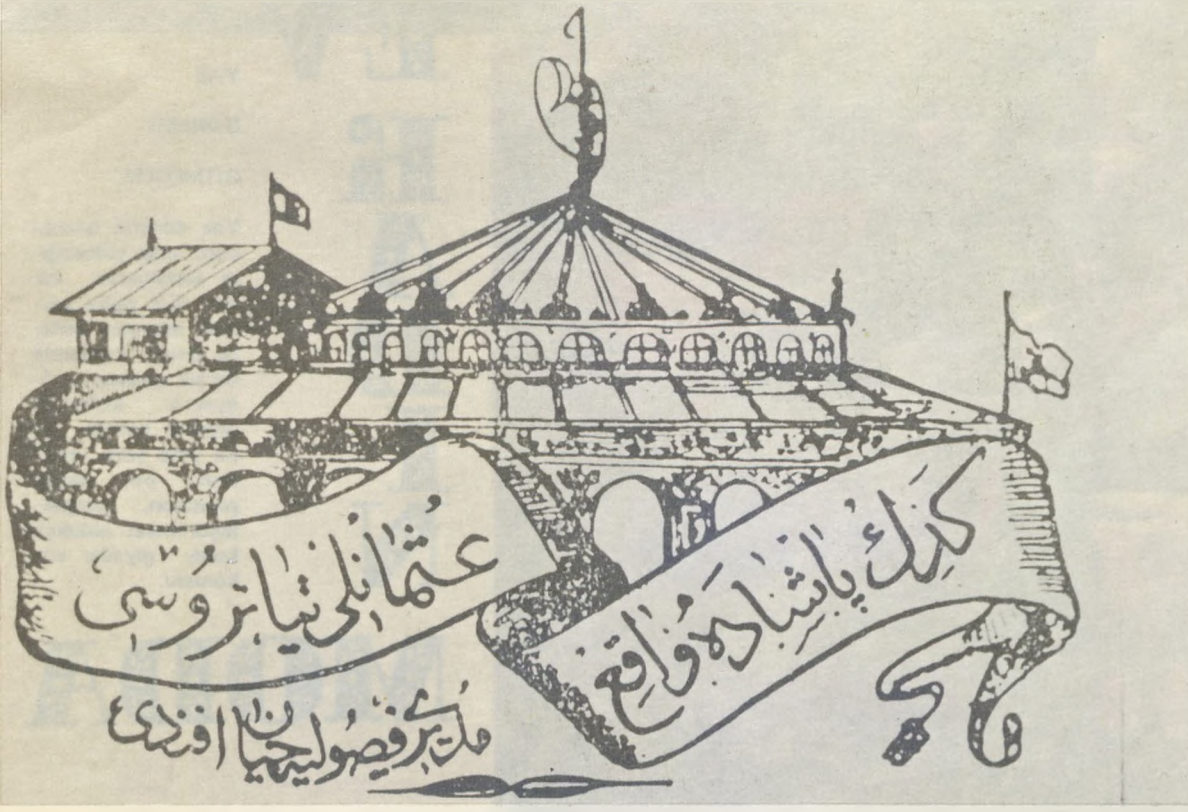 كدك پاشاده واقع
عثمانلی تیاتروسی
مدیری فصولیجیان افندی